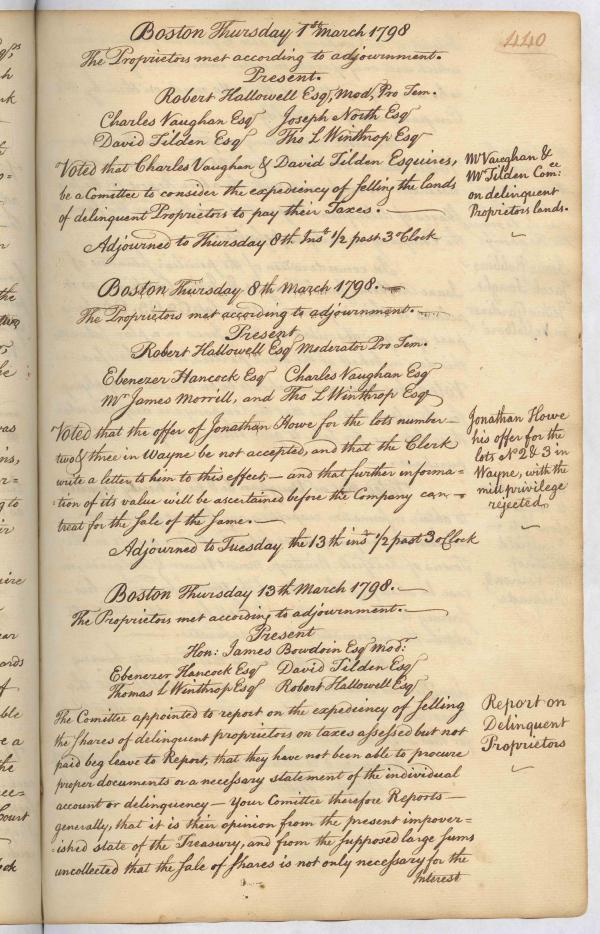 440
Boston Thursday 1st March 1798
The Proprietors met according to adjournment.
Present.
Robert Hallowell Esqr, Mod, Pro Tem.
Charles Vaughan Esqr Joseph North Esqr
David Tilden Esqr Tho L Winthrop Esqr
Voted that Charles Vaughan & David Tilden Esquires,
be a Comittee to consider the expediency of selling the lands
of delinquent Proprietors to pay their Taxes. —
Mr Vaughan &
Mr Tilden Com:ee
on delinquent
Proprietors lands.
Adjourned to Thursday 8th Inst 1/2 past 3 oClock
Boston Thursday 8th March 1798. —
The Proprietors met according to adjournment. —
Present
Robert Hallowell Esqr Moderator Pro Tem.
Ebenezer Hancock Esqr Charles Vaughan Esqr
Mr James Morrill, and Tho L Winthrop Esqr
Voted that the offer of Jonathan Howe for the lots number —
two & three in Wayne be not accepted, and that the Clerk
write a letter to him to this effect, — and that further informa=
=tion of its value will be ascertained before the Company can —
treat for the Sale of the Same. —
Jonathan Howe
his offer for the
lots No 2 & 3 in
Wayne, with the
mill privilege
rejected.
Adjourned to Tuesday the 13th inst 1/2 past 3 oClock
Boston Thursday 13th March 1798. —
The Proprietors met according to adjournment. —
Present
Hon: James Bowdoin Esqr Modr:
Ebenezer Hancock Esqr David Tilden Esqr
Thomas L Winthrop Esqr Robert Hallowell Esqr
The Comittee appointed to report on the expediency of selling
the shares of delinquent proprietors on taxes assessed but not
paid beg leave to Report, that they have not been able to procure
proper documents or a necessary statement of the individual
account or delinquency — Your Comittee therefore Reports —
generally, that it is their opinion from the present impover=
=ished state of the Treasury, and from the supposed large sums
uncollected that the Sale of Shares is not only necessary for the
Interest
Report on
Delinquent
Proprietors